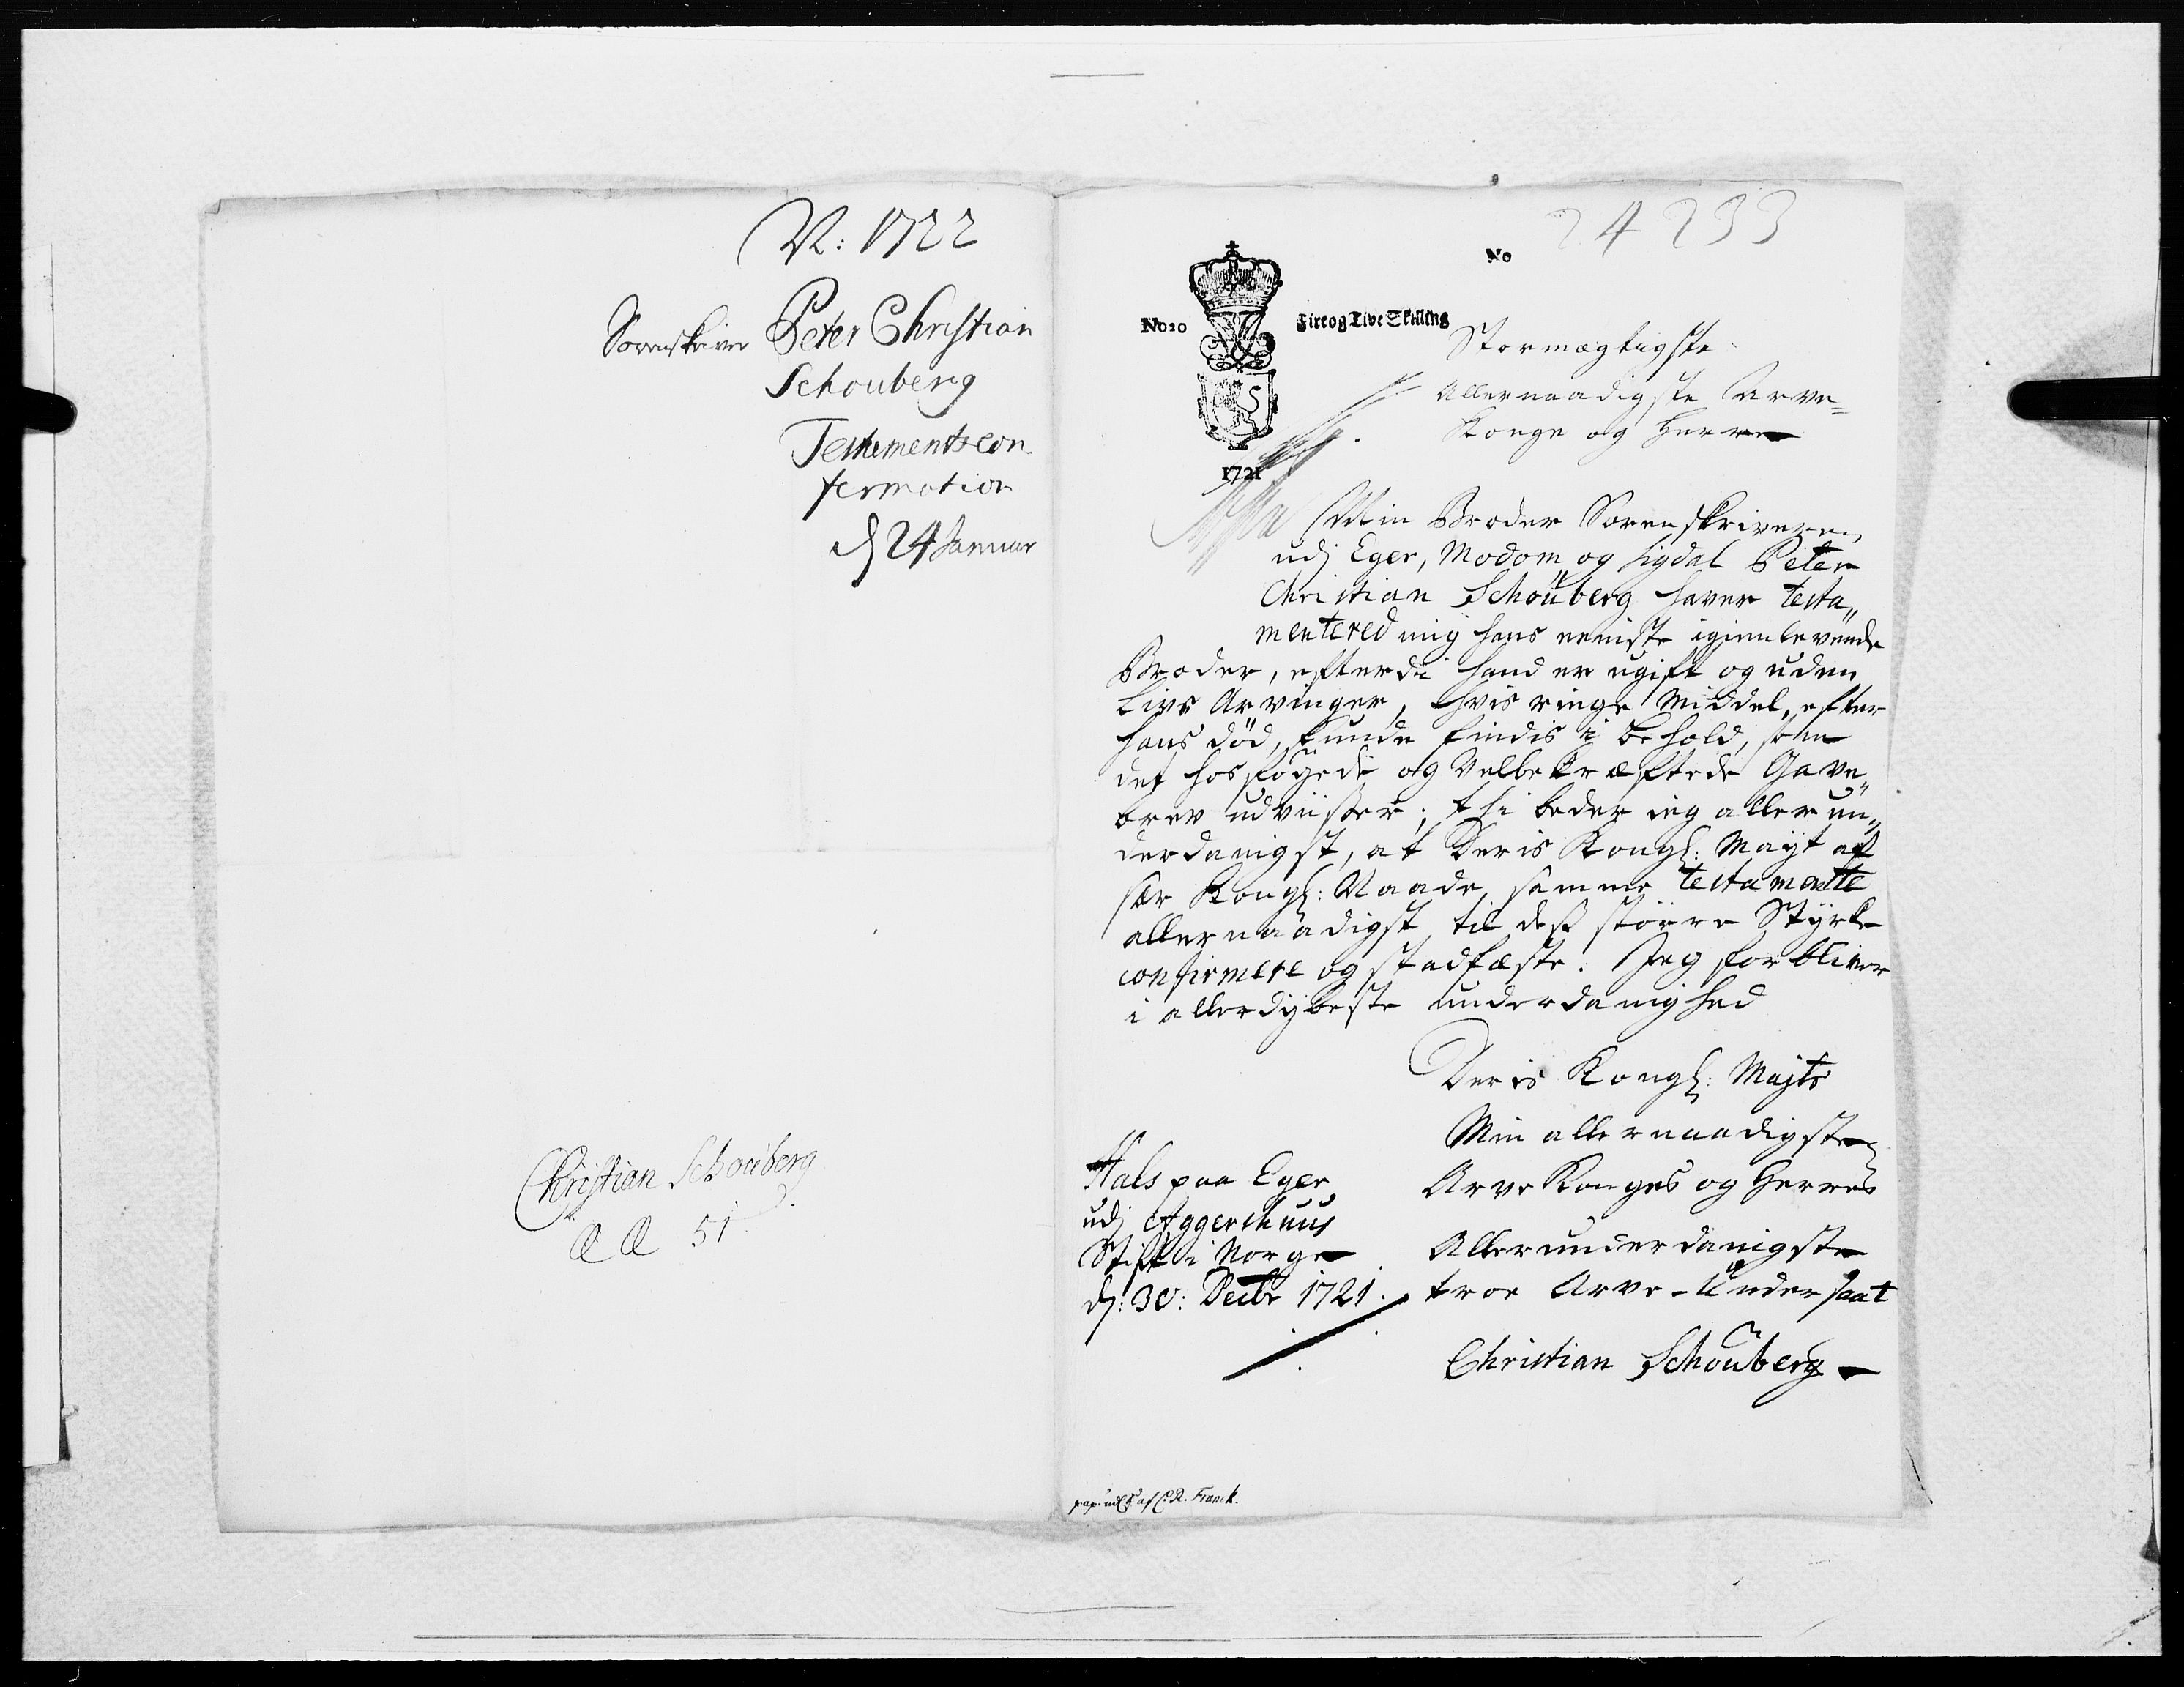 N: 1722
Sorenskriver Peter Christian
Schouberg
Testementscon-
fermation
d 24 Januar
Christian Schouberg
Æ Æ 51
24233
No
No20
Fire og Tive Skilling
1721
Stormægtigste
Allernaadigste Arve=
Konge og Herre
Min Broder Sorenskriveren
udj Eger, Modom og Sigdal Peter
Christian Schouberg haver testa„
mentered mig hans eeniste igienlevende
Broder, efterdi hand er ugift og uden
Livs Arvinger, hvis ringe Middel, efter
hans död, kunde findis i behold, som
det hosföyede og Velbekræftede Gave„
brev udviiser; thi beder ieg allerun„
derdanigst, at Deris Kongl: Mayt af
sær Kongl: Naade, samme testamente
allernaadigst til dess större Styrke
confirmere og stadfæste. Jeg forbliver
i allerdybeste underdanighed
Deris Kongl: Majts
Min allernaadigste
Arve Konges og Herres
Hals paa Eger
udj Aggershuus
Stift i Norge
d: 30: Decbr 1721.
Allerunderdanigste
troe Arve-Undersaat
Christian Schouberg
pap. udg af C. R. Franck.